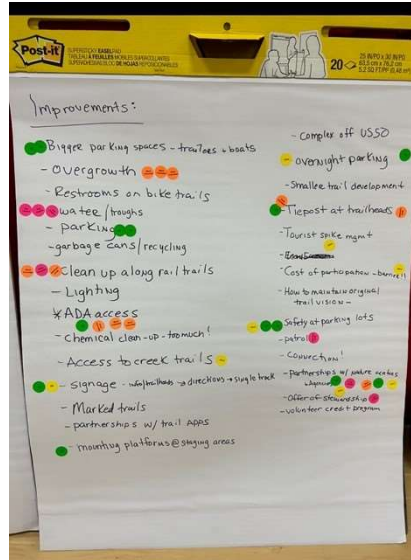 Post-it
SUPERSTICKY EASEL PAD
20
25 IN/PO x 30 IN/PO
63,5 cm x 76,2 cm
Improvements:
Bigger parking spaces - trailers + boats
- Overgrowth
- Restrooms on bike trails
water/troughs
- parking
- garbage cans/recycling
Clean up along rail trails
- Lighting
* ADA access
- chemical clean-up - too much!
- Access to creek trails
- signage - info/trailheads → directions → single track
- Marked trails
- partnerships w/ trail APPS
- mounting platforms @ staging areas
- Complex off US50
overnight parking
- Smaller trail development
- Tiepost at trailheads
- Tourist spike mgmt
- Cost of participation - benefit
- How to maintain original
trail vision -
Safety at parking lots
- patrol
- Connection!
- partnerships w/ nature centers
- Offer of stewardship
- volunteer credit program